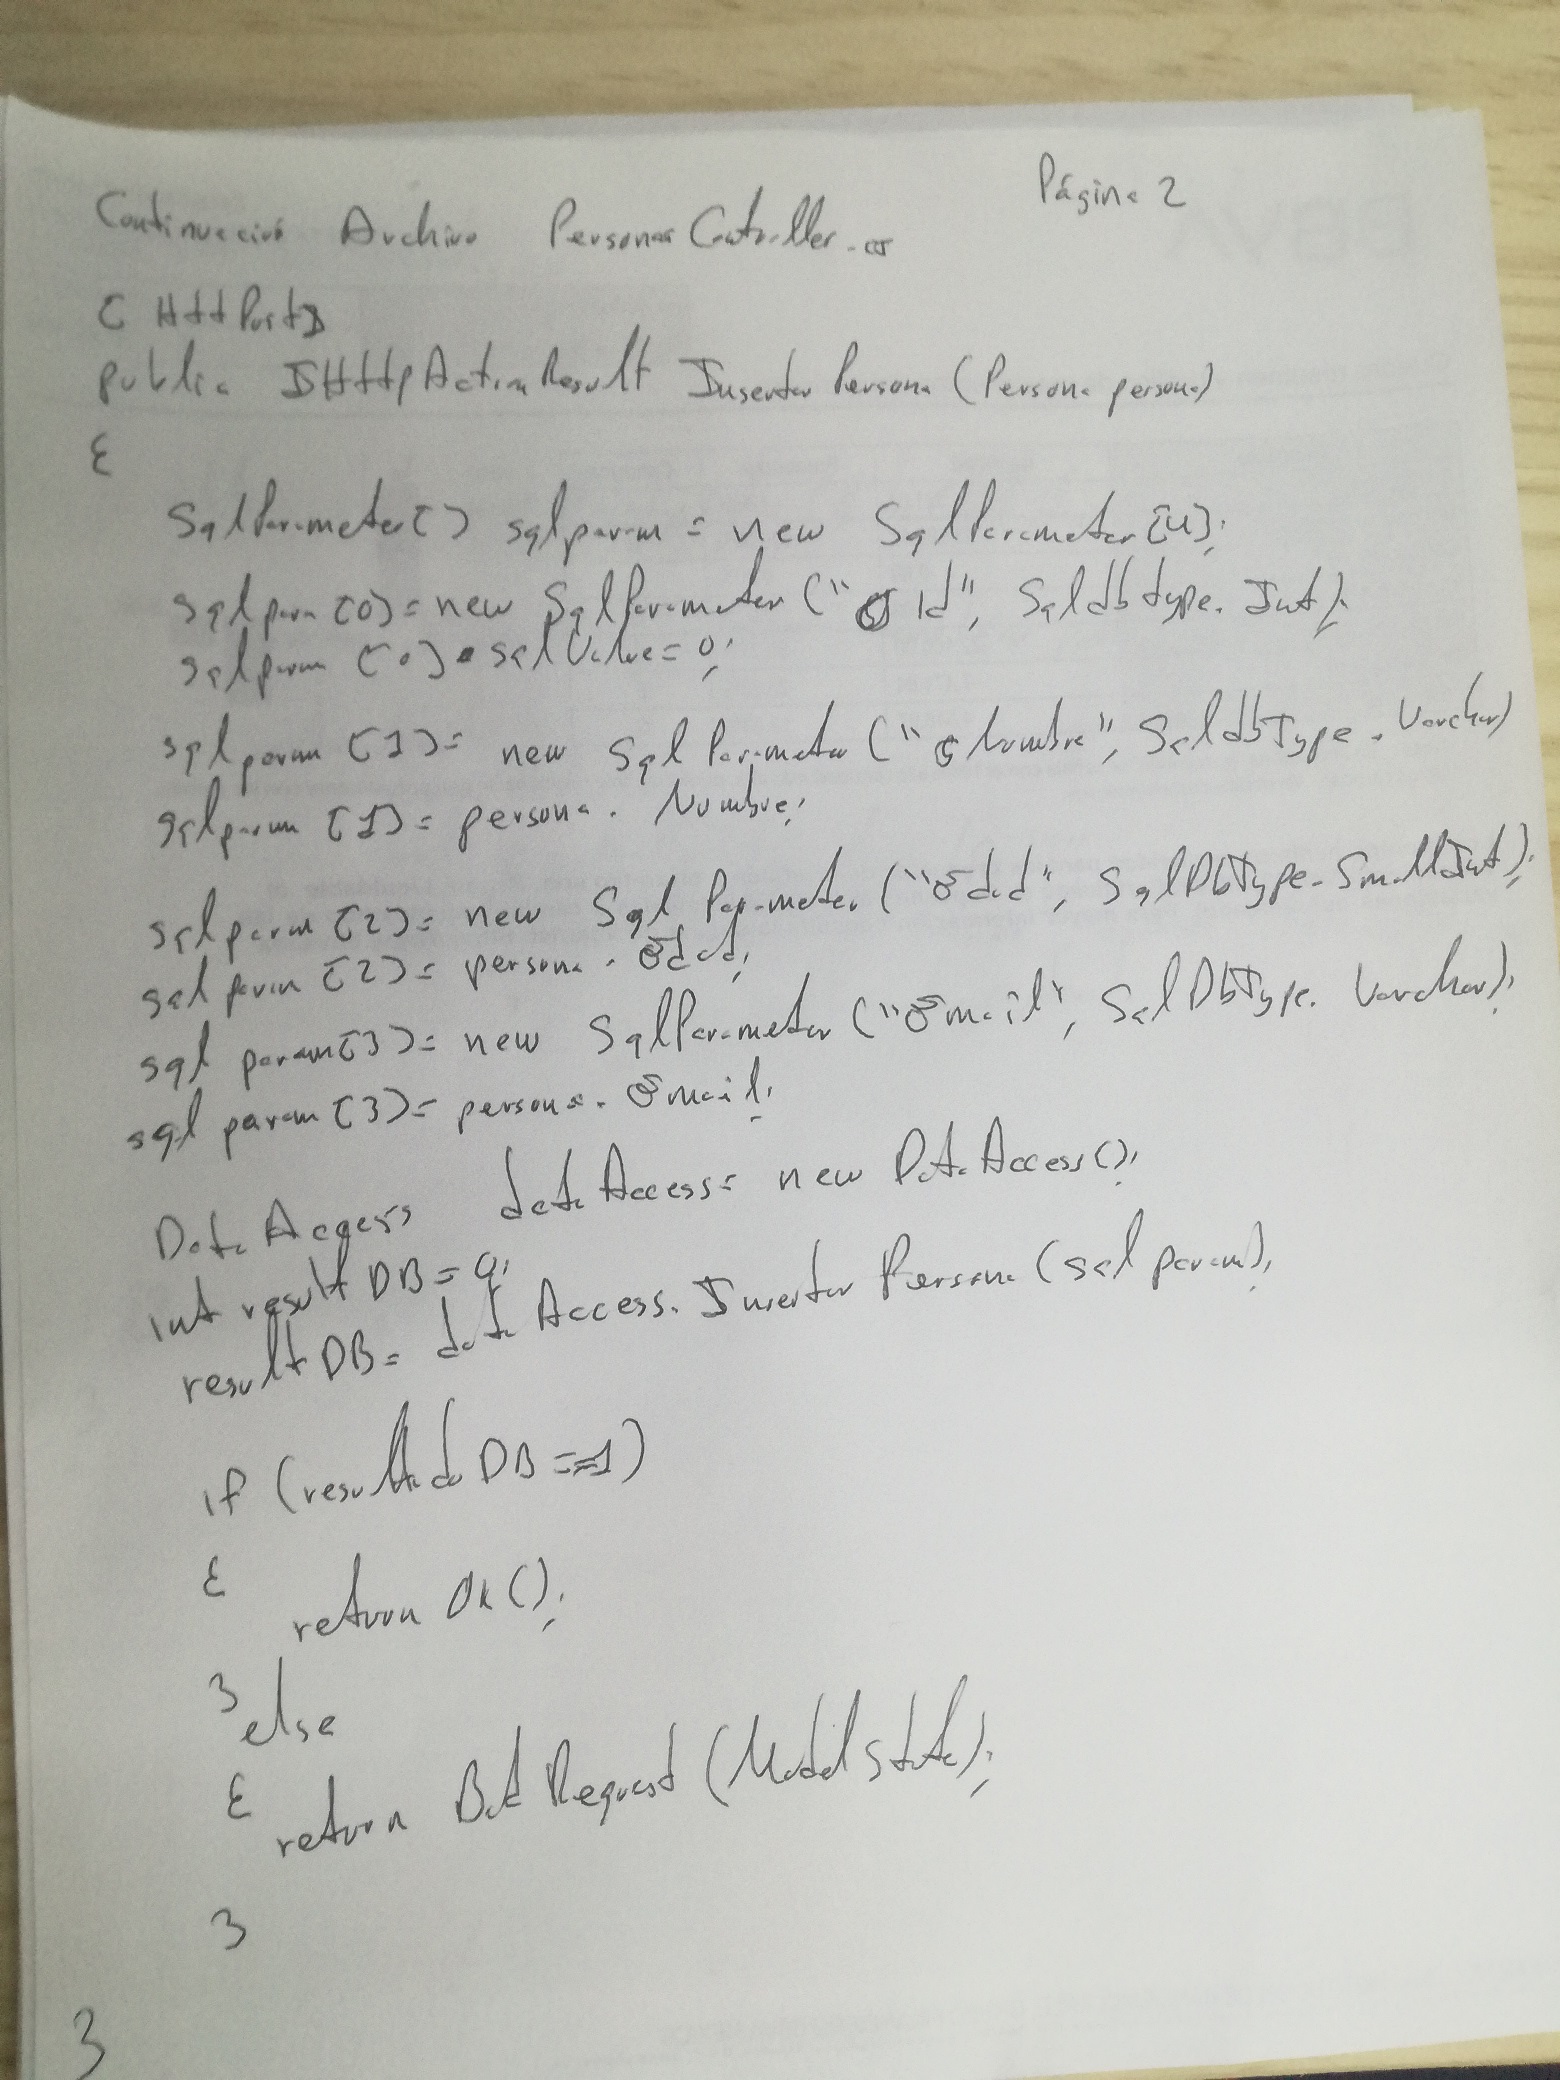 Página 2
Continuación Archivo PersonasController.cs
[HttpPost]
public IHttpActionResult InsertarPersona (Persona persona)
{
SqlParameter[] sqlparam = new SqlParameter[4];
sqlparam[0]= new SqlParameter ("@id", Sqldbtype.Int);
sqlparam [0].sqlValue= 0;
sqlparam [1]= new SqlParameter ("@Nombre", SqldbType.Varchar)
sqlparam [1]= persona.Nombre;
sqlparam [2]= new SqlParameter ("Edad", SqlDbType.SmallInt);
sqlparam [2]= persona.Edad;
sqlparam[3]= new SqlParameter ("Email", SqlDbType.Varchar);
sqlparam[3]= persona.Email;
DataAccess dataAccess= new DataAccess();
int resultDB= 0;
resultDB= dataAccess.InsertarPersona (sqlparam);
if (resultadoDB==1)
{
return Ok();
}else
{
return BadRequest (ModelState);
}
}